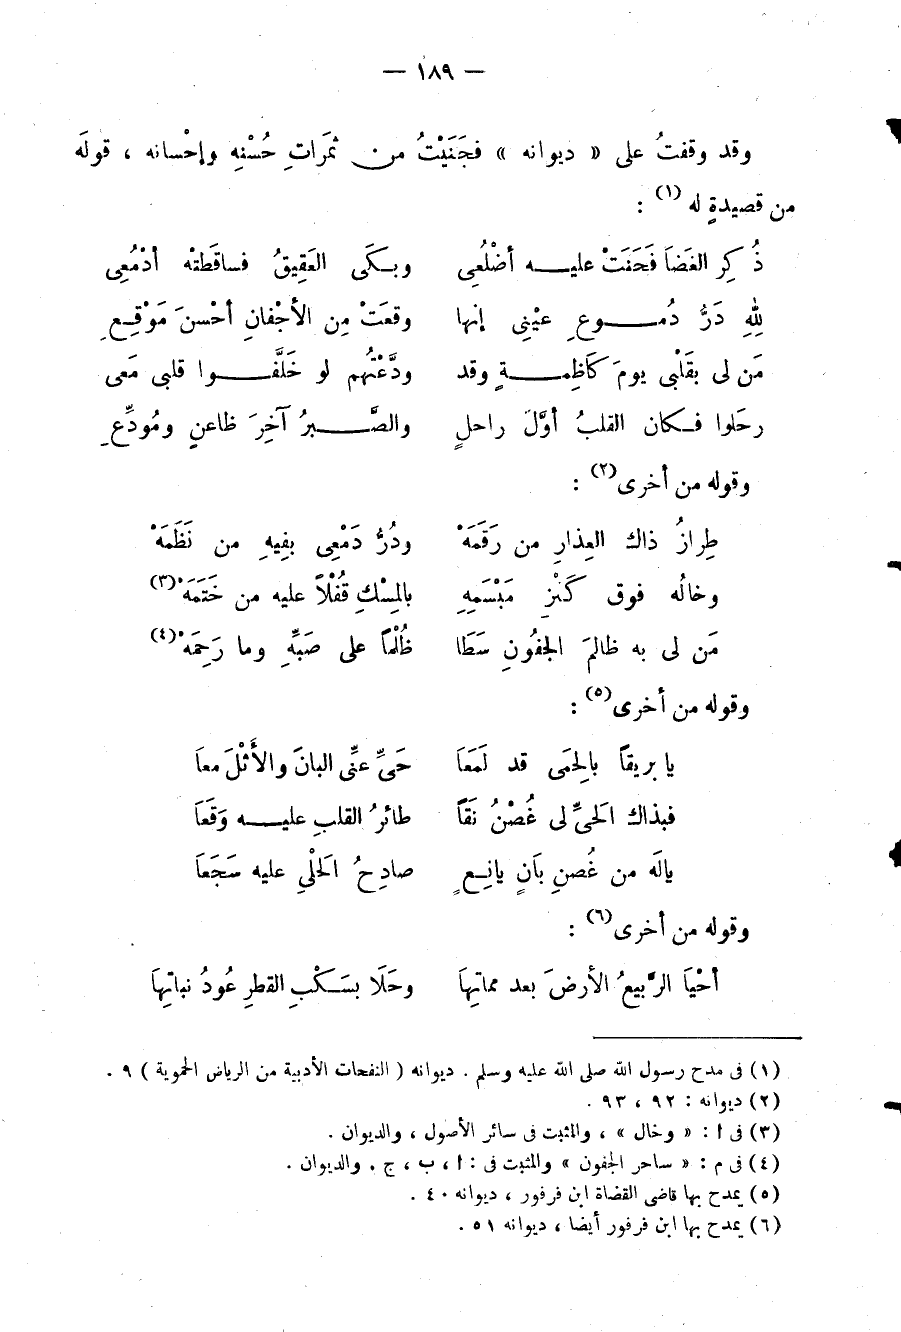 — ١٨٩ —
وقد وقفتُ على « ديوانه » فجَنَيْتُ من ثمَرات حُسْنِه وإحْسانه ، قولَه
من قصيدةٍ له (١) :
ذُكِر الغَضَا فَحَنَتْ عليه أضْلُعِى وبكَى العَقِيقُ فساقَطتْه أدْمُعِى
لِلهِ دَرُّ دُموعِ عيْنِى إنها وقعَتْ مِن الأجْفانِ أحْسنَ مَوْقِعِ
مَن لى بقَلْبى يومَ كَاظِمةٍ وقد ودَّعْتُهم لو خَلَّفوا قلبى مَعى
رحَلوا فكان القلبُ أوَّلَ راحلٍ والصَّبرُ آخِرَ ظاعنٍ ومُودِّعِ
وقوله من أخرى (٢) :
طِرازُ ذاك العِذارِ من رَقَمَهْ ودُرُّ دَمْعِى بفِيهِ من نَظَمَهْ
وخالُه فوق كَنْزِ مَبْسَمِهِ بالمِسْكِ قُفْلاً عليه من خَتَمَهْ (٣)
مَن لى به ظالمَ الجفُونِ سَطَا ظُلْماً على صَبِّهِ وما رَحِمَهْ (٤)
وقوله من أخرى (٥) :
يا بريقاً بالِحمَى قد لَمَعَا حَىِّ عنِّى البانَ والأَثْلَ معاَ
فبذاك الَحىِّ لى غُصْنُ نَقاً طائرُ القلبِ عليه وَقَعاَ
يالَه من غُصنِ بَانٍ يانِعٍ صادِحُ الَحلْىِ عليه سَجَعاَ
وقوله من أخرى (٦) :
أحْيَا الرَّبيعُ الأرضَ بعد مماتِهاَ وحَلَا بسَكْبِ القطرِ عُودُ نباتِهاَ
(١) فى مدح رسول الله صلى الله عليه وسلم . ديوانه ( النفحات الأدبية من الرياض الحموية ) ٩ .
(٢) ديوانه : ٩٢ ، ٩٣ .
(٣) فى ا : « وخال » ، والمثبت فى سائر الأصول ، والديوان .
(٤) فى م : « ساحر الجفون » والمثبت فى : ا ، ب ، ج . والديوان .
(٥) يمدح بها قاضى القضاة ابن فرفور ، ديوانه ٤٠ .
(٦) يمدح بها ابن فرفور أيضا ، ديوانه ٥١ .